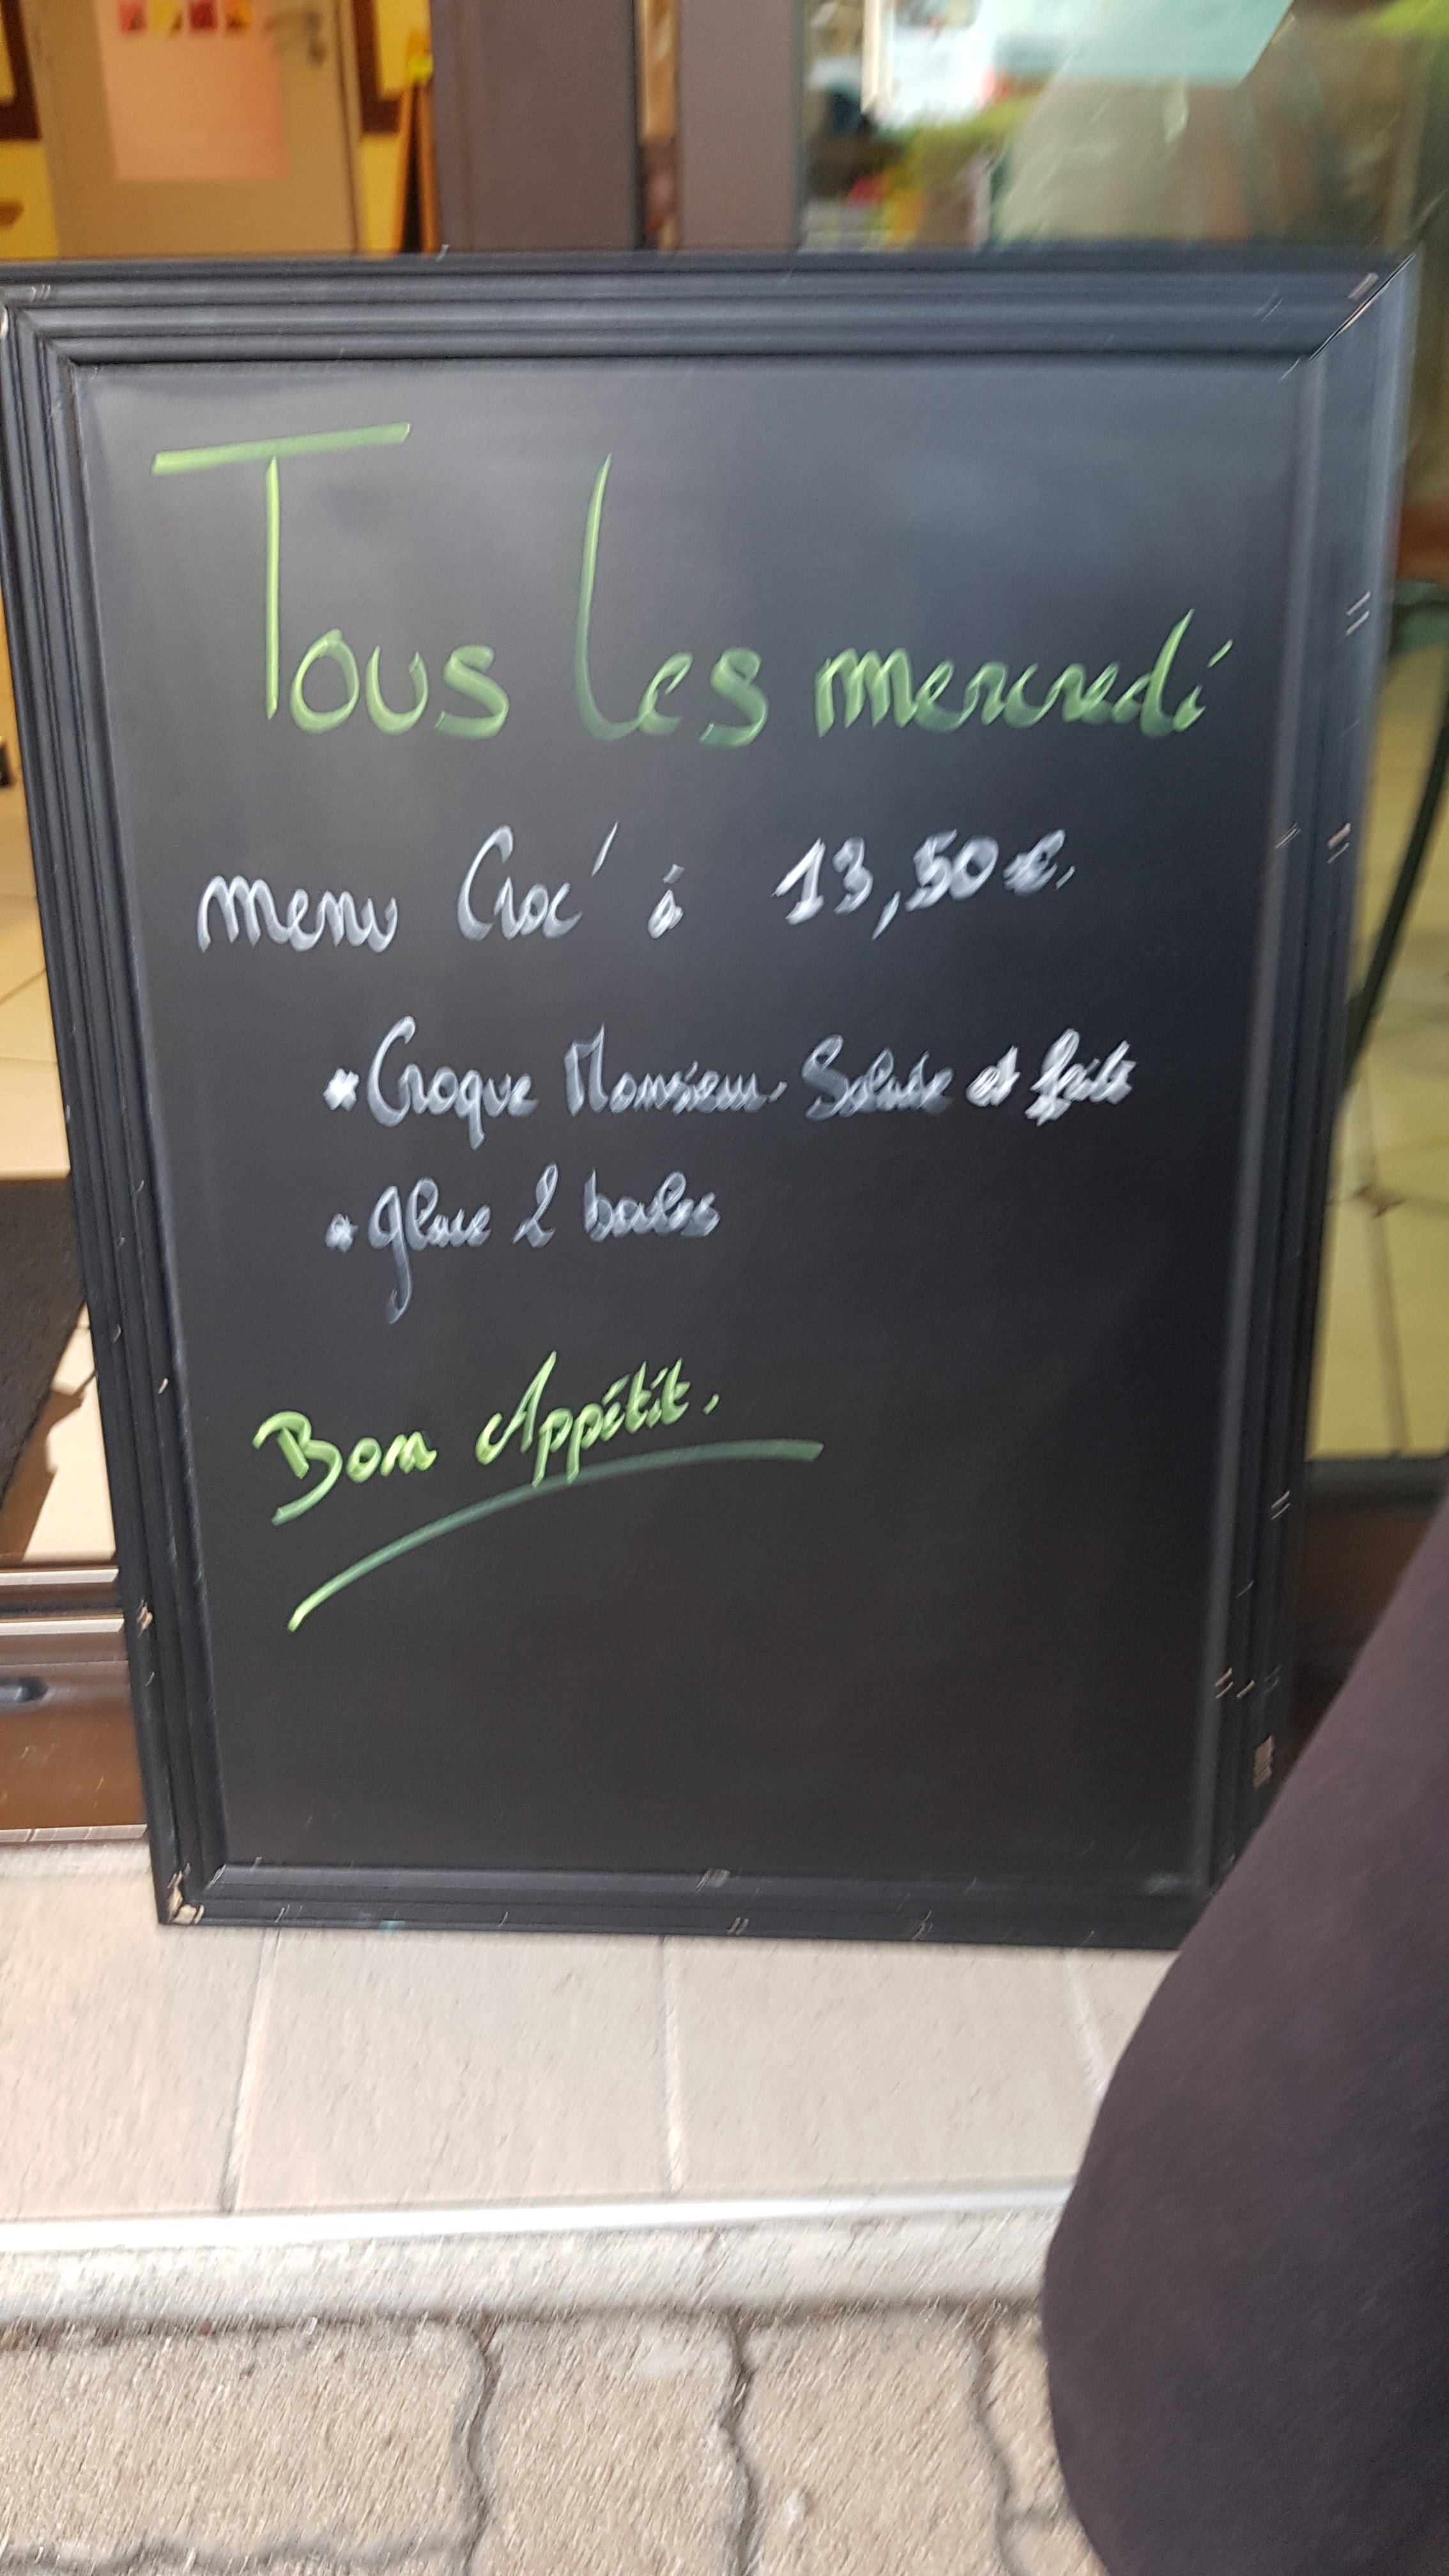 Tous Les mercredi
menu Croc' à 13,50 €.
* Croque Monsieur Salade et frite
* glace 2 boules
Bon Appétit.